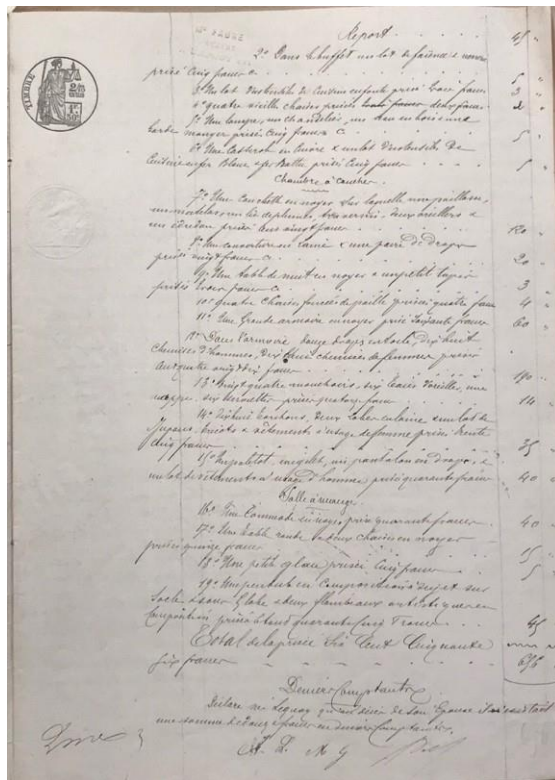 Report. 45
2° Dans le buffet un lot de faïence & verrerie
prisé Cinq francs 5
3° Un lot d'ustensiles de Cuisine en fonte prisé trois francs 3
4° quatre vieilles chaises prisées deux francs 2
5° Une lampe, un chandelier, un seau en bois & un
Garde manger prisés Cinq francs 5
6° Une Casserole en Cuivre & un lot d'ustensiles de
Cuisine en fer Blanc & fer Battu prisés Cinq francs 5
Chambre à Coucher
7° Une Couchette en noyer sur laquelle une paillasse,
un matelas, un lit de plumes, traversin, deux oreillers &
un édredon prisés cent vingt francs 120
8° Une couverture en laine & une paire de draps
prisés vingt francs 20
9° Une table de nuit en noyer & un petit tapis
prisés trois francs 3
10° quatre Chaises foncées de paille prisées quatre francs 4
11° Une Grande armoire en noyer prisée Soixante francs 60
12° Dans l'armoire draps en toile, dix huit
Chemises d'hommes, chemises de femmes prisés
Cent quatre vingt dix francs 190
13° Vingt quatre mouchoirs, six taies d'oreilles, une
nappe, six serviettes prisés quatorze francs 14
14° bonnets, deux en laine, un lot de
Jupons, tricots & vêtements à usage de femme prisés trente
cinq francs 35
15° Un paletot, un gilet, un pantalon en drap, &
un lot de vêtements à usage d'homme, prisés quarante francs 40
Salle à manger
16° Une Commode en noyer, prisée quarante francs 40
17° Une table ronde & deux Chaises en noyer
prisées quinze francs 15
18° Une petite glace prisée Cinq francs 5
19° Une pendule en Composition à Sujet sur
Socle & sous Globe & deux flambeaux
Composition prisés le tout quarante cinq francs 45
Total de la prisée Six Cent Cinquante
Six francs 656
Deniers Comptants
Déclare me Lequoy qu'au décès de son Epouse il existait
une somme de douze francs en deniers Comptants.
TIMBRE